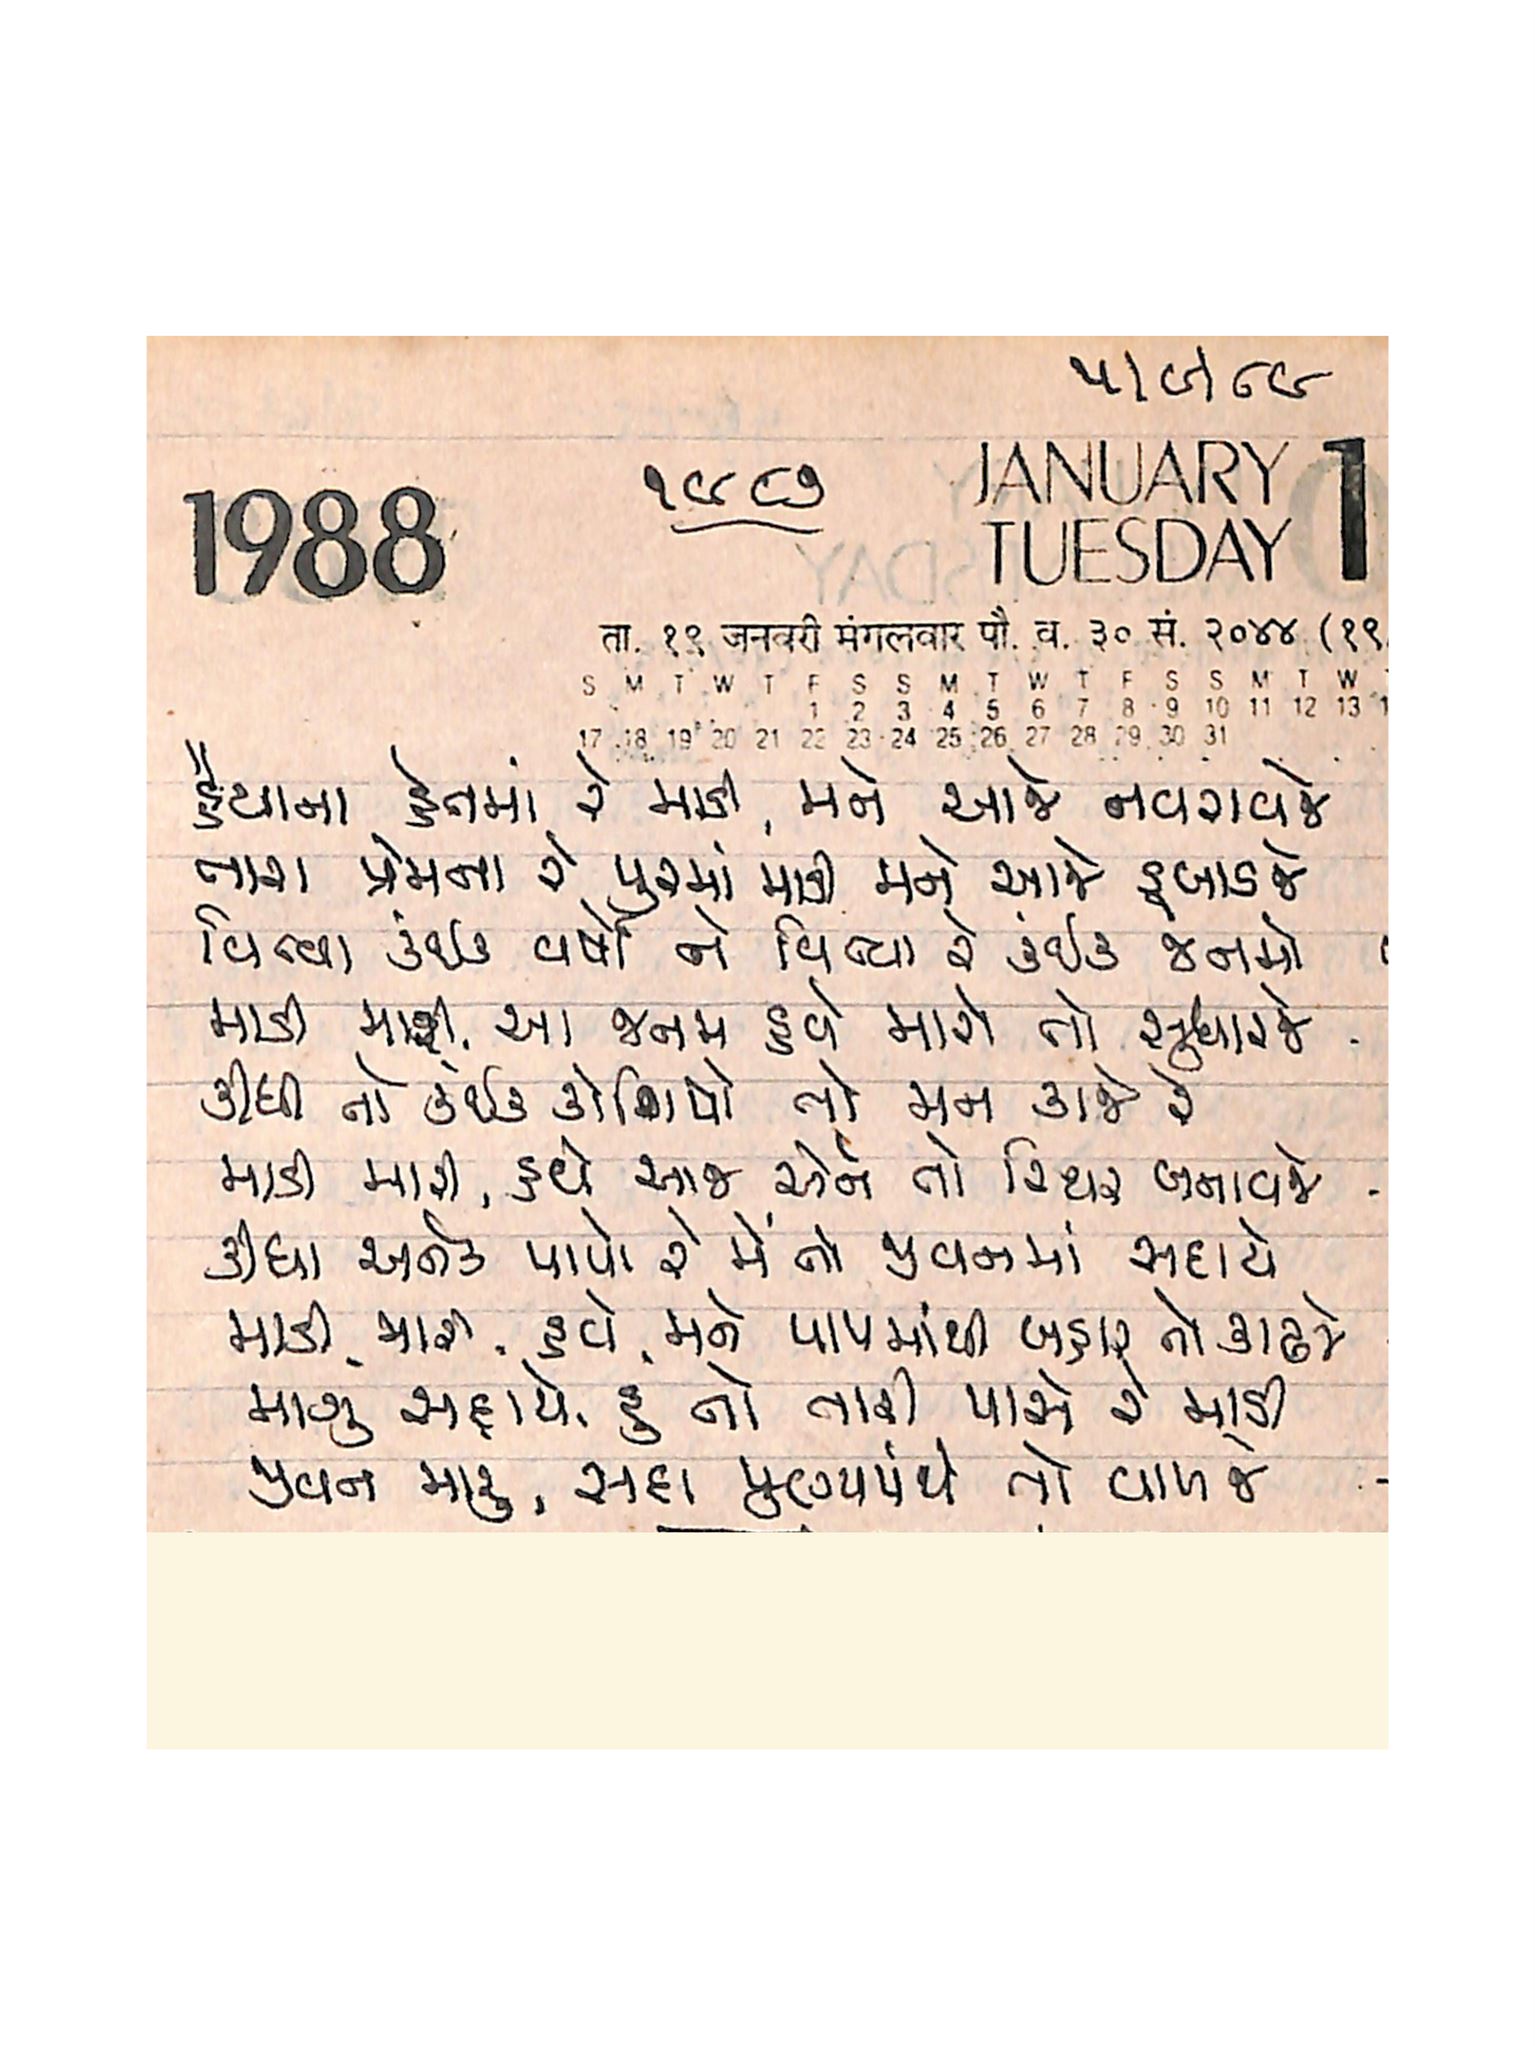 ૫।૯।૮૯
1988
૧૯૮૭
JANUARY 1
TUESDAY
ता. १९ जनवरी मंगलवार पौ. व. ३० सं. २०४४ (१९
S M T W T F S S M T W T F S S M T W
1 2 3 4 5 6 7 8 9 10 11 12 13 1
17 18 19 20 21 22 23 24 25 26 27 28 29 30 31
હૈયાના હેતમાં રે માડી, મને આજે નવરાવજે
તારા પ્રેમના રે પુરમાં માડી મને આજે ડૂબાડજે
વિત્યા કંઈક વર્ષો ને વિત્યા રે કંઈક જનમો
માડી મારી, આ જનમ હવે મારો તો સુધારજે
કીધી તો કંઈક કોશિષો તો મન કાજે રે
માડી મારી, હવે આજ એને તો સ્થિર બનાવજે
કીધા અનેક પાપો રે મેં તો જીવનમાં સદાયે
માડી મારી, હવે મને પાપમાંથી બહાર તો કાઢજે
માગુ સદાયે, હું તો તારી પાસે રે માડી
જીવન મારૂ, સદા પુણ્યપંથે તો વાળજે